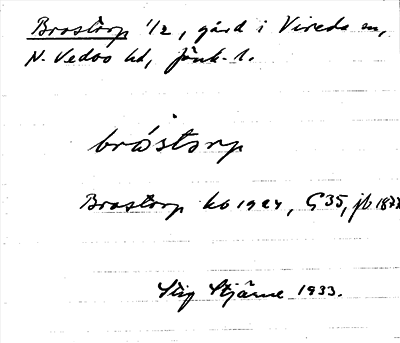 Brostorp 1/2, gård i Vireda sn,
N. Vedbo hd, Jönk. l.
bróstorp
Brostorp ko 1927, G35, jb 1877
Stig Stjärne 1933.